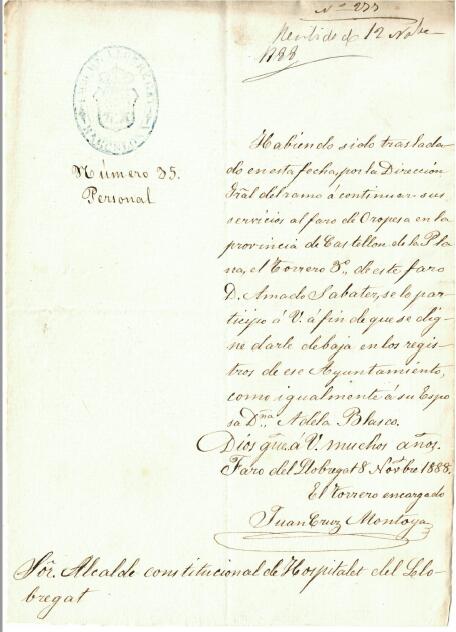 Nº 277
Recibido el 12 Nobe
1888
BARCELONA
Número 35.
Personal
Habiendo sido traslada
do en esta fecha, por la Dirección
Gral del ramo á continuar sus
servicios al faro de Oropesa en la
provincia de Castellon de la Pla
na, el Torrero 3º, de este faro
D. Amado Sabater, se lo par
ticipo á V. á fin de que se dig
ne darle de baja en los regis
tros de ese Ayuntamiento,
como igualmente á su Espo
sa Dña Adela Blasco.
Dios gue. á V. muchos años.
Faro del Llobregat 8 Novbre 1888.
El torrero encargado
Juan Cruz Montoya
Sor. Alcalde constitucional de Hospitalet del Llo-
bregat